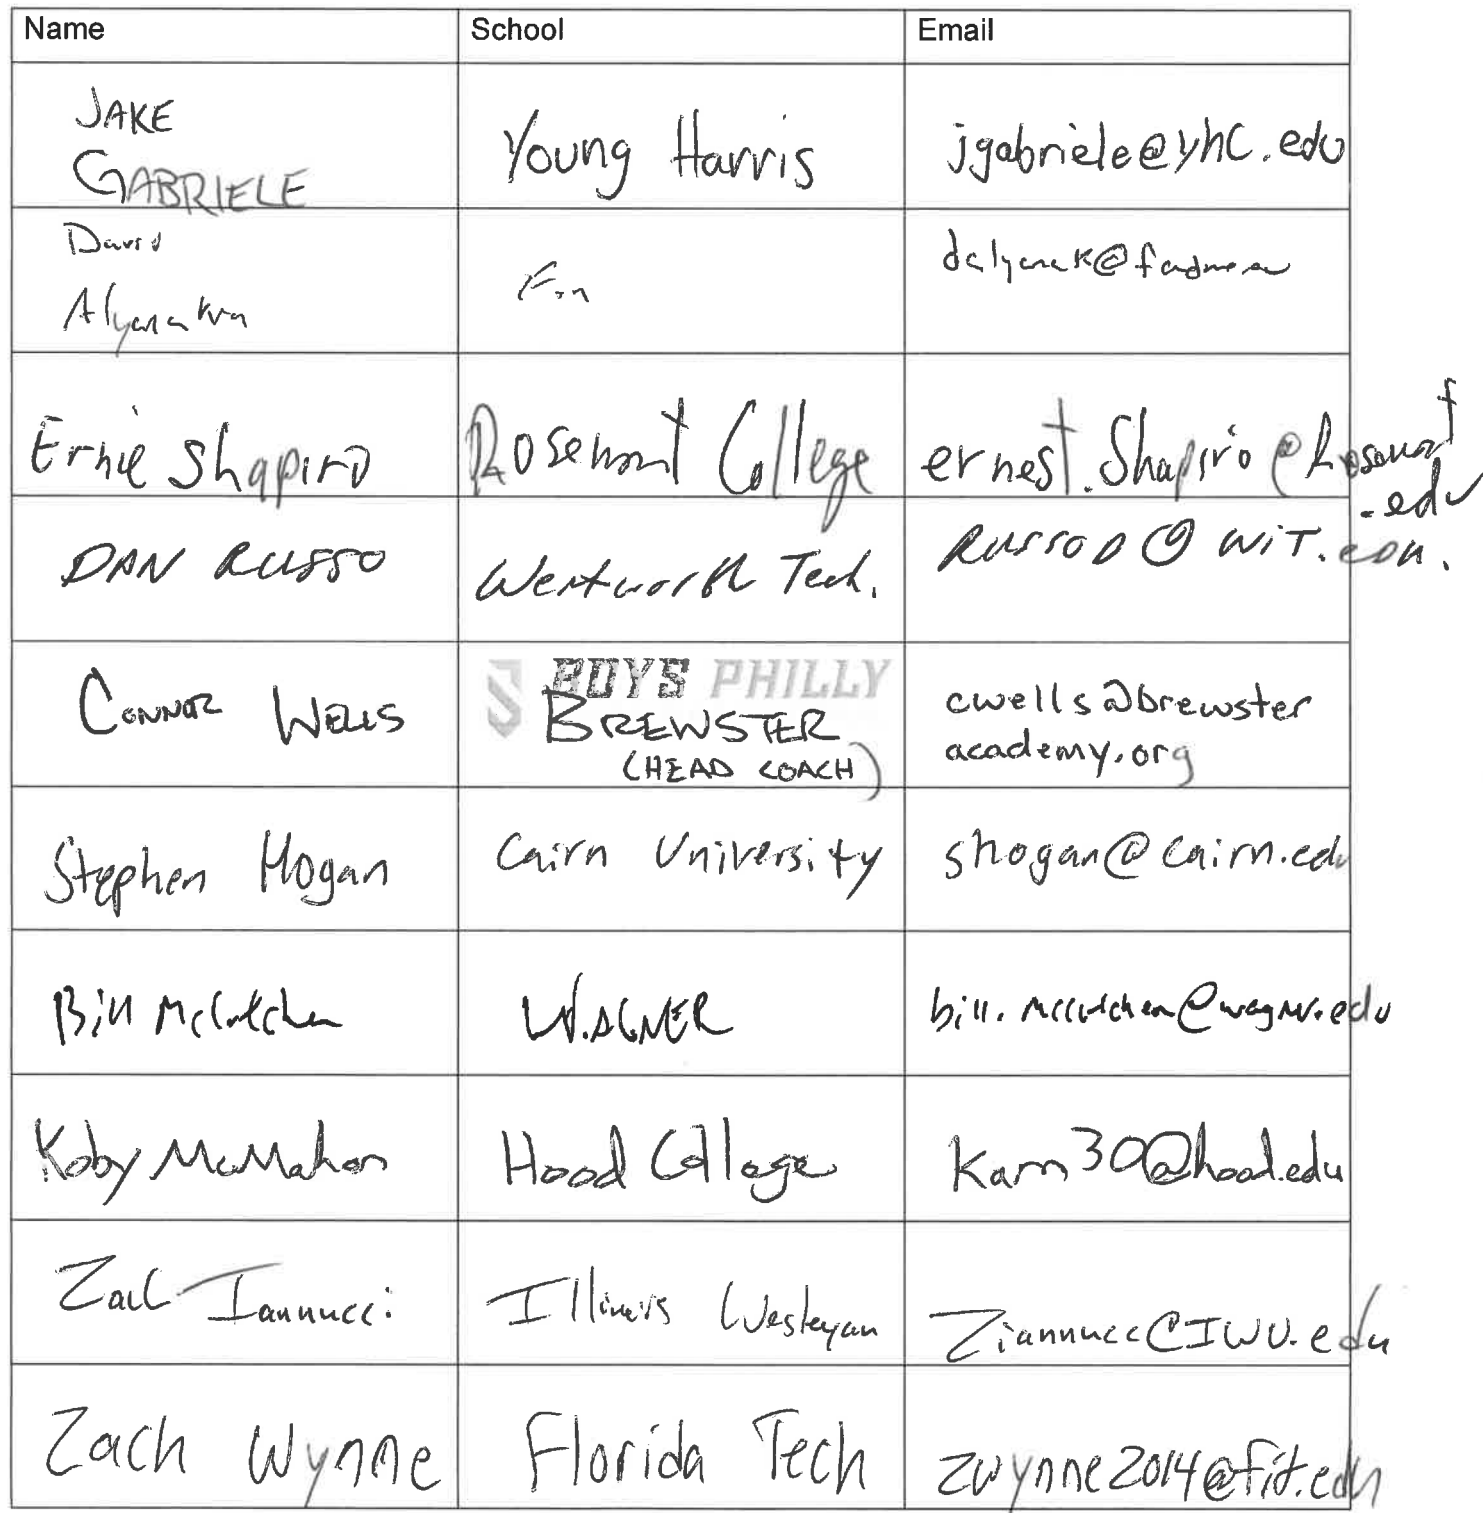 Name School Email
JAKE
GABRIELE
Young Harris
jgabriele@yhc.edu
David
Ernie Shapiro
Rosemont College
ernest.Shapiro@Rosemont
.edu
DAN RUSSO
Wentworth Tech.
RUSSOD@WIT.EDU.
CONNOR WELLS
BOYS PHILLY
BREWSTER
(HEAD COACH)
cwells@brewster
academy.org
Stephen Hogan
Cairn University
shogan@cairn.edu
Bill McCutchen
WAGNER
bill.mccutchen@wagner.edu
Koby McMahon
Hood College
Kam30@hood.edu
Zach Iannucci
Illinois Wesleyan
Ziannucc@IWU.edu
Zach Wynne
Florida Tech
zwynne2014@fit.edu